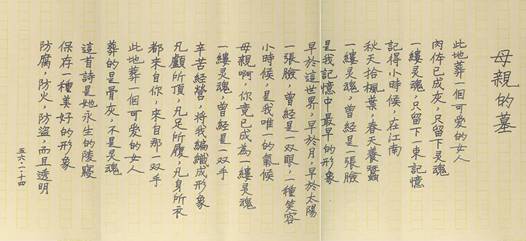 母親的墓
此地葬一個可愛的女人
肉体已成灰，只留下灵魂
一縷灵魂，只留下一束記憶
記得小時候，在江南
秋天拾楓葉，春天養蠶
一縷灵魂，曾經是一張臉
是我記憶中最早的形象
早於這世界，早於月，早於太陽
一張臉，曾經是一双眼，一種笑容
小時候，是我唯一的氣候
母親啊，你竟已成為一縷灵魂
一縷灵魂，曾經是一双手
辛苦經營，將我編織成形象
凡顱所頂，凡足所履，凡身所衣
都來自你，來自那一双手
此地葬一個可愛的女人
葬的是骨灰，不是灵魂
這首詩是她永生的陵寢
保存一種美好的形象
防腐，防火，防盜，而且透明
五六·一·十四